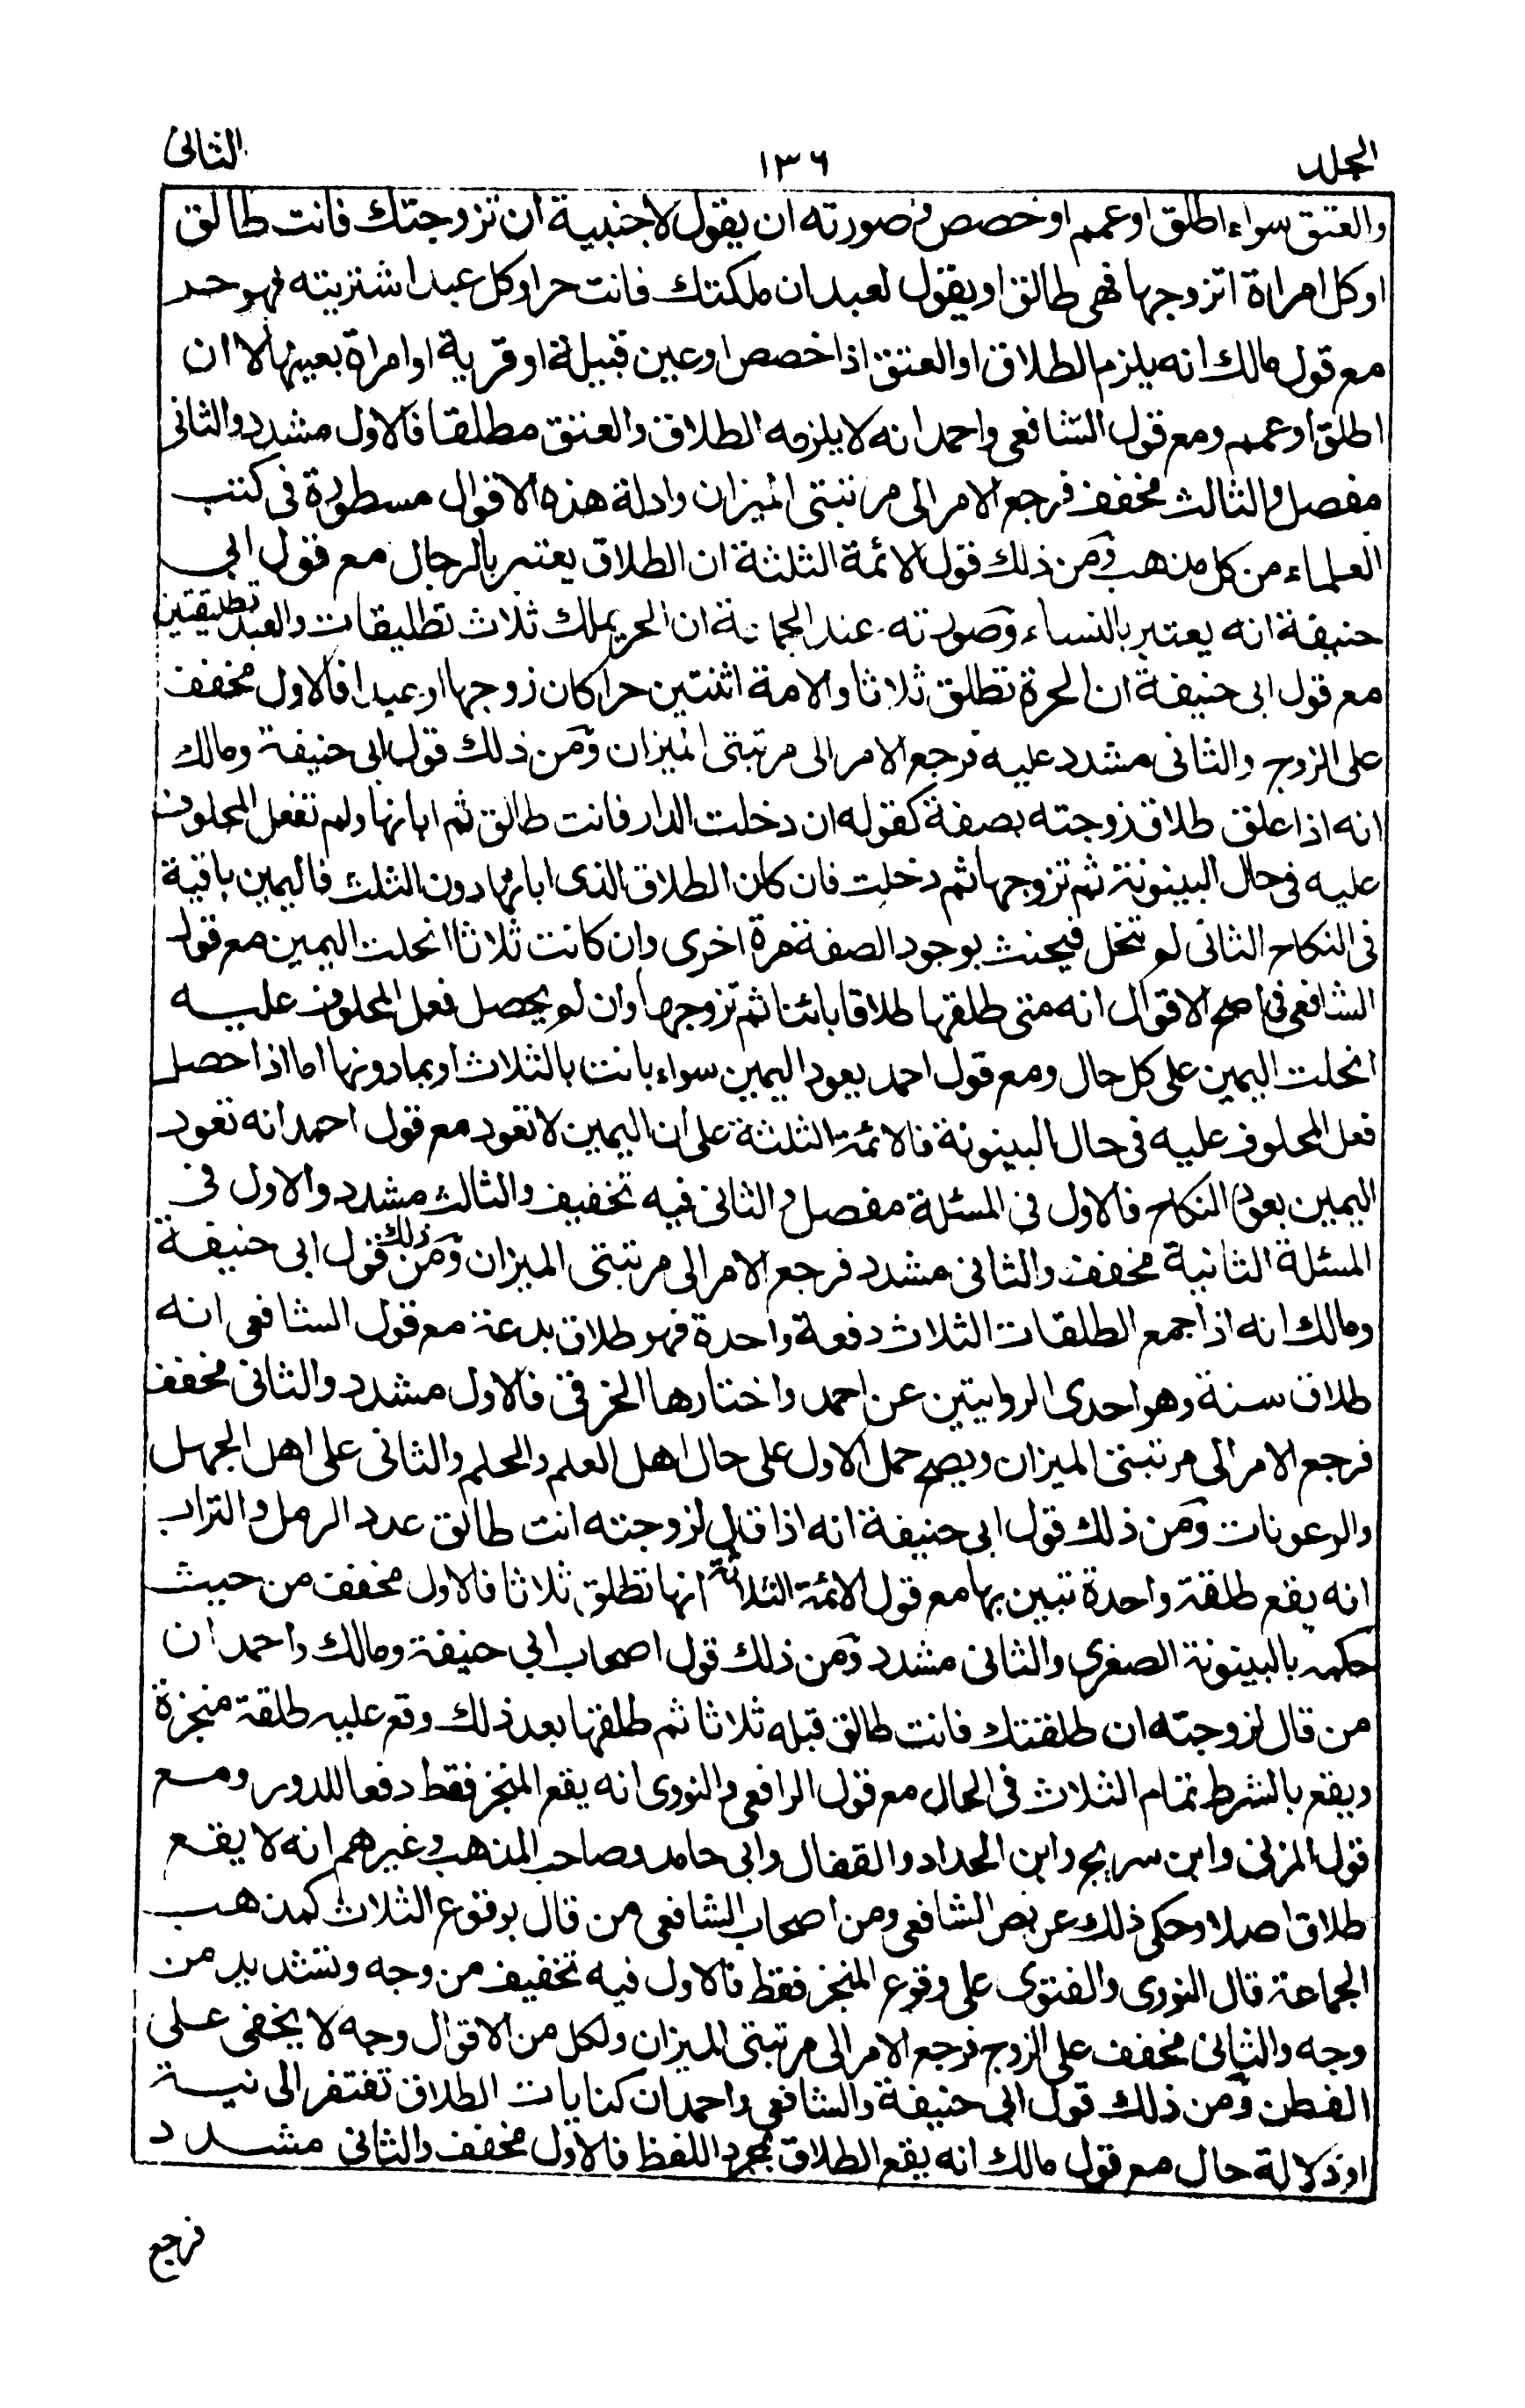 المجلد ١٣٦ الثانی
والعتق سواء اطلق او عمم او خصص و صورته ان يقول لاجنبية ان تزوجتك فانت طالق
او كل امراة اتزوجها فهی طالق او يقول لعبد ان ملكتك فانت حر او كل عبد اشتريته فهو حر
مع قول مالك انه يلزم الطلاق او العتق اذا خصص او عين قبيلة او قرية او امراة بعينها لا ان
اطلق او عمم ومع قول الشافعی واحمد انه لا يلزمه الطلاق والعتق مطلقا فالاول مشدد والثانی
مفصل والثالث مخفف فرجع الامر الی مرتبتی الميزان وادلة هذه الاقوال مسطورة فی كتب
العلماء من كل مذهب ومن ذلك قول الائمة الثلثة ان الطلاق يعتبر بالرجال مع قول ابی
حنيفة انه يعتبر بالنساء وصورته عند الجماعة ان الحر يملك ثلاث تطليقات والعبد تطليقتين
مع قول ابی حنيفة ان الحرة تطلق ثلاثا والامة اثنتين حرا كان زوجها او عبدا فالاول مخفف
علی الزوج والثانی مشدد عليه فرجع الامر الی مرتبتی الميزان ومن ذلك قول ابی حنيفة ومالك
انه اذا علق طلاق زوجته بصفة كقوله ان دخلت الدار فانت طالق ثم ابانها ولم تفعل المحلوف
عليه فی حال البينونة ثم تزوجها ثم دخلت فان كان الطلاق الذی ابانها دون الثلث فاليمين باقية
فی النكاح الثانی لم تنحل فيحنث بوجود الصفة مرة اخری وان كانت ثلاثا انحلت اليمين مع قول
الشافعی فی اصح الاقوال انه متی طلقها طلاقا بائنا ثم تزوجها وان لم يحصل فعل المحلوف عليه
انحلت اليمين علی كل حال ومع قول احمد يعود اليمين سواء بانت بالثلاث او بما دونها اما اذا حصل
فعل المحلوف عليه فی حال البينونة فالائمة الثلثة علی ان اليمين لا تعود مع قول احمد انه تعود
اليمين بعود النكاح فالاول فی المسئلة مفصل والثانی فيه تخفيف والثالث مشدد والاول فی
المسئلة الثانية مخفف والثانی مشدد فرجع الامر الی مرتبتی الميزان ومن ذلك قول ابی حنيفة
ومالك انه اذا جمع الطلقات الثلاث دفعة واحدة فهو طلاق بدعة مع قول الشافعی انه
طلاق سنة وهو احدی الروايتين عن احمد واختارها الخرقی فالاول مشدد والثانی مخفف
فرجع الامر الی مرتبتی الميزان ويصح حمل الاول علی حال اهل العلم والحلم والثانی علی اهل الجهل
والرعونات ومن ذلك قول ابی حنيفة انه اذا قال لزوجته انت طالق عدد الرمل والتراب
انه يقع طلقة واحدة تبين بها مع قول الائمة الثلاثة انها تطلق ثلاثا فالاول مخفف من حيث
حكمه بالبينونة الصغری والثانی مشدد ومن ذلك قول اصحاب ابی حنيفة ومالك واحمد ان
من قال لزوجته ان طلقتك فانت طالق قبله ثلاثا ثم طلقها بعد ذلك وقع عليه طلقة منجزة
ويقع بالشرط تمام الثلاث فی الحال مع قول الرافعی والنووی انه يقع المنجز فقط دفعا للدور ومع
قول المزنی وابن سريج وابن الحداد والقفال وابی حامد وصاحب المذهب وغيرهم انه لا يقع
طلاق اصلا وحكی ذلك عن نص الشافعی ومن اصحاب الشافعی من قال بوقوع الثلاث كمذهب
الجماعة قال النووی والفتوی علی وقوع المنجز فقط فالاول فيه تخفيف من وجه وتشديد من
وجه والثانی مخفف علی الزوج فرجع الامر الی مرتبتی الميزان ولكل من الاقوال وجه لا يخفی علی
الفطن ومن ذلك قول ابی حنيفة والشافعی واحمد ان كنايات الطلاق تفتقر الی نية
او دلالة حال مع قول مالك انه يقع الطلاق بمجرد اللفظ فالاول مخفف والثانی مشدد
فرجع